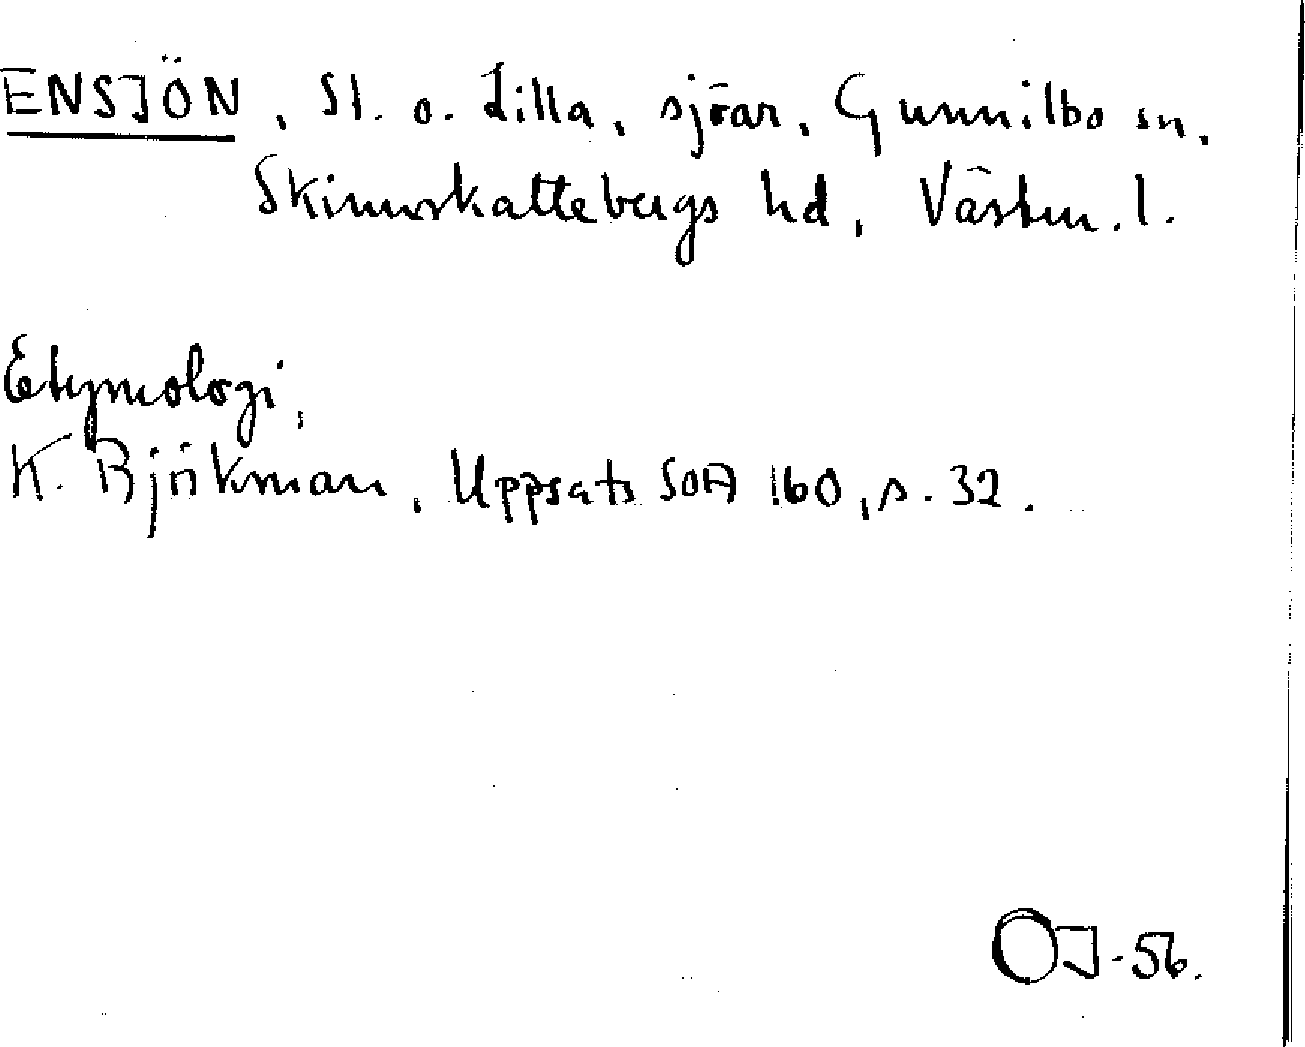 ENSJÖN, St. o. Lilla, sjöar, Gunnilbo sn.
Skinnskattebergs hd, Västm. l.
Etymologi,
K. Björkman, Uppsats SOA 160, s. 32.
OJ-56.